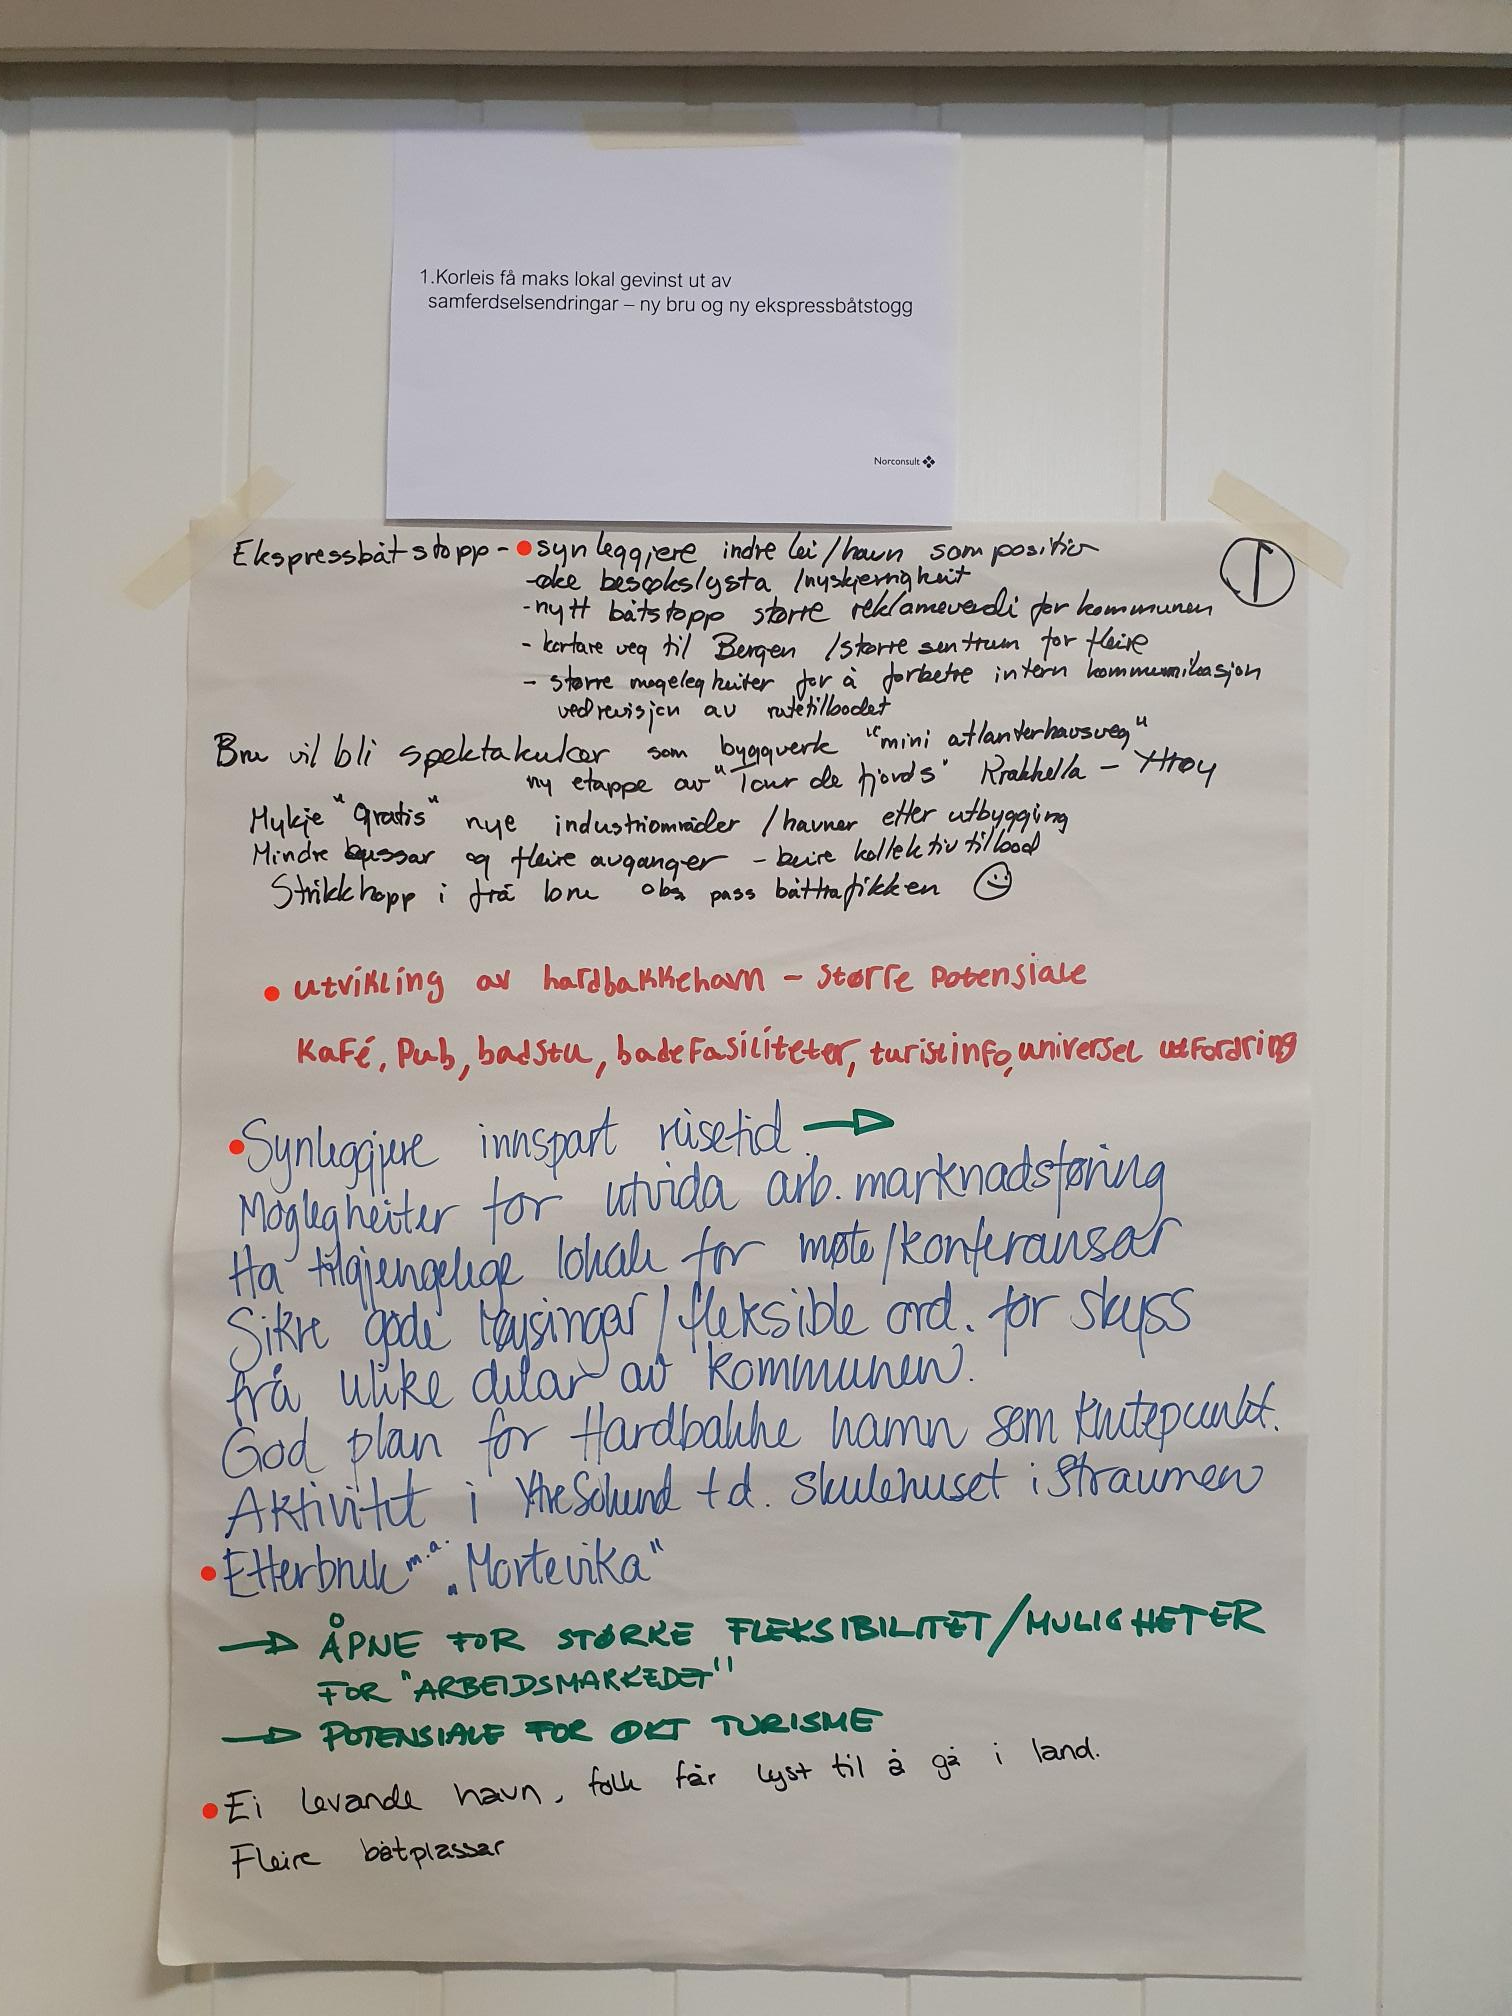 1.Korleis få maks lokal gevinst ut av
samferdselsendringar – ny bru og ny ekspressbåtstogg
Norconsult
1
Ekspressbåtstopp - synleggjere indre lei/havn som positiv
-øke besøkslysta /nyskjerrigheit
-nytt båtstopp større reklameverdi for kommunen
- kortare veg til Bergen /større sentrum for fleire
- større mogelegheiter for å forbetre intern kommunikasjon
ved revisjon av rutetilbodet
Bru vil bli spektakulær som byggverk "mini atlanterhavsveg"
ny etappe av "Tour de fjords" Krakhella - Ytrøy
Mykje "gratis" nye industriområder /havner etter utbygging
Mindre bussar og fleire avganger - beire kollektivtilbod
Strikkhopp i frå bru obs pass båttrafikken
• utvikling av hardbakkehavn - større potensiale
Kafé, Pub, badstu, badefasiliteter, turistinfo, universel utfordring
• Synleggjere innspart reisetid →
Moglegheiter for utvida arb. marknadsføring
Ha tilgjengelege lokale for møte/konferansar
Sikre gode løysingar/fleksible ord. for skyss
frå ulike delar av kommunen.
God plan for Hardbakke hamn som knutepunkt.
Aktivitet i Ytre Solund t.d. skulehuset i Straumen
• Etterbruk m.a. „Mortevika"
→ ÅPNE FOR STØRRE FLEKSIBILITET/MULIGHETER
FOR "ARBEIDSMARKEDET"
→ POTENSIALE FOR ØKT TURISME
• Ei levande havn, folk får lyst til å gå i land.
Fleire båtplassar